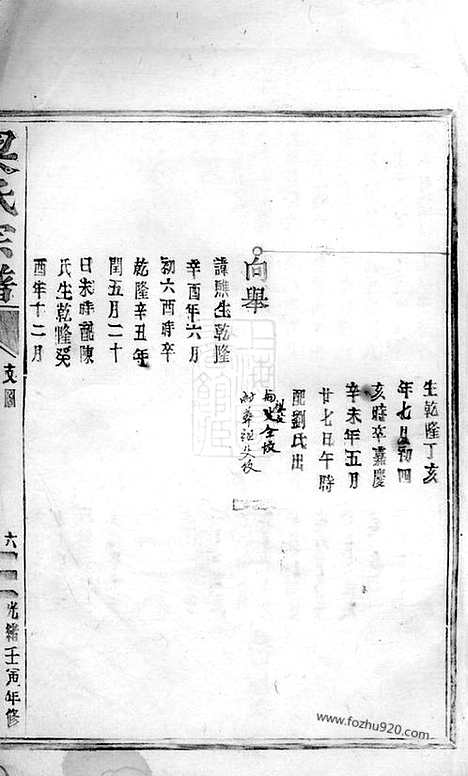 生乾隆丁亥
年七月初四
亥時卒嘉慶
辛未年五月
廿七日午時
配劉氏出
向舉
諱興生乾隆
辛酉年六月
初六酉時卒
乾隆辛丑年
閏五月二十
日未時配陳
氏生乾隆癸
酉年十二月
氏宗譜
支圖
六
光緒壬寅年修
www.fozhu920.com